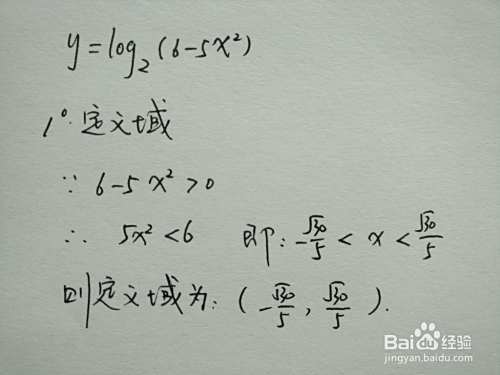 y=log₂(6-5x²)
1°.定义域
∵ 6-5x²>0
∴ 5x²<6 即:-√30/5<x<√30/5
则定义域为:(-√30/5,√30/5).
Baidu经验
jingyan.baidu.com